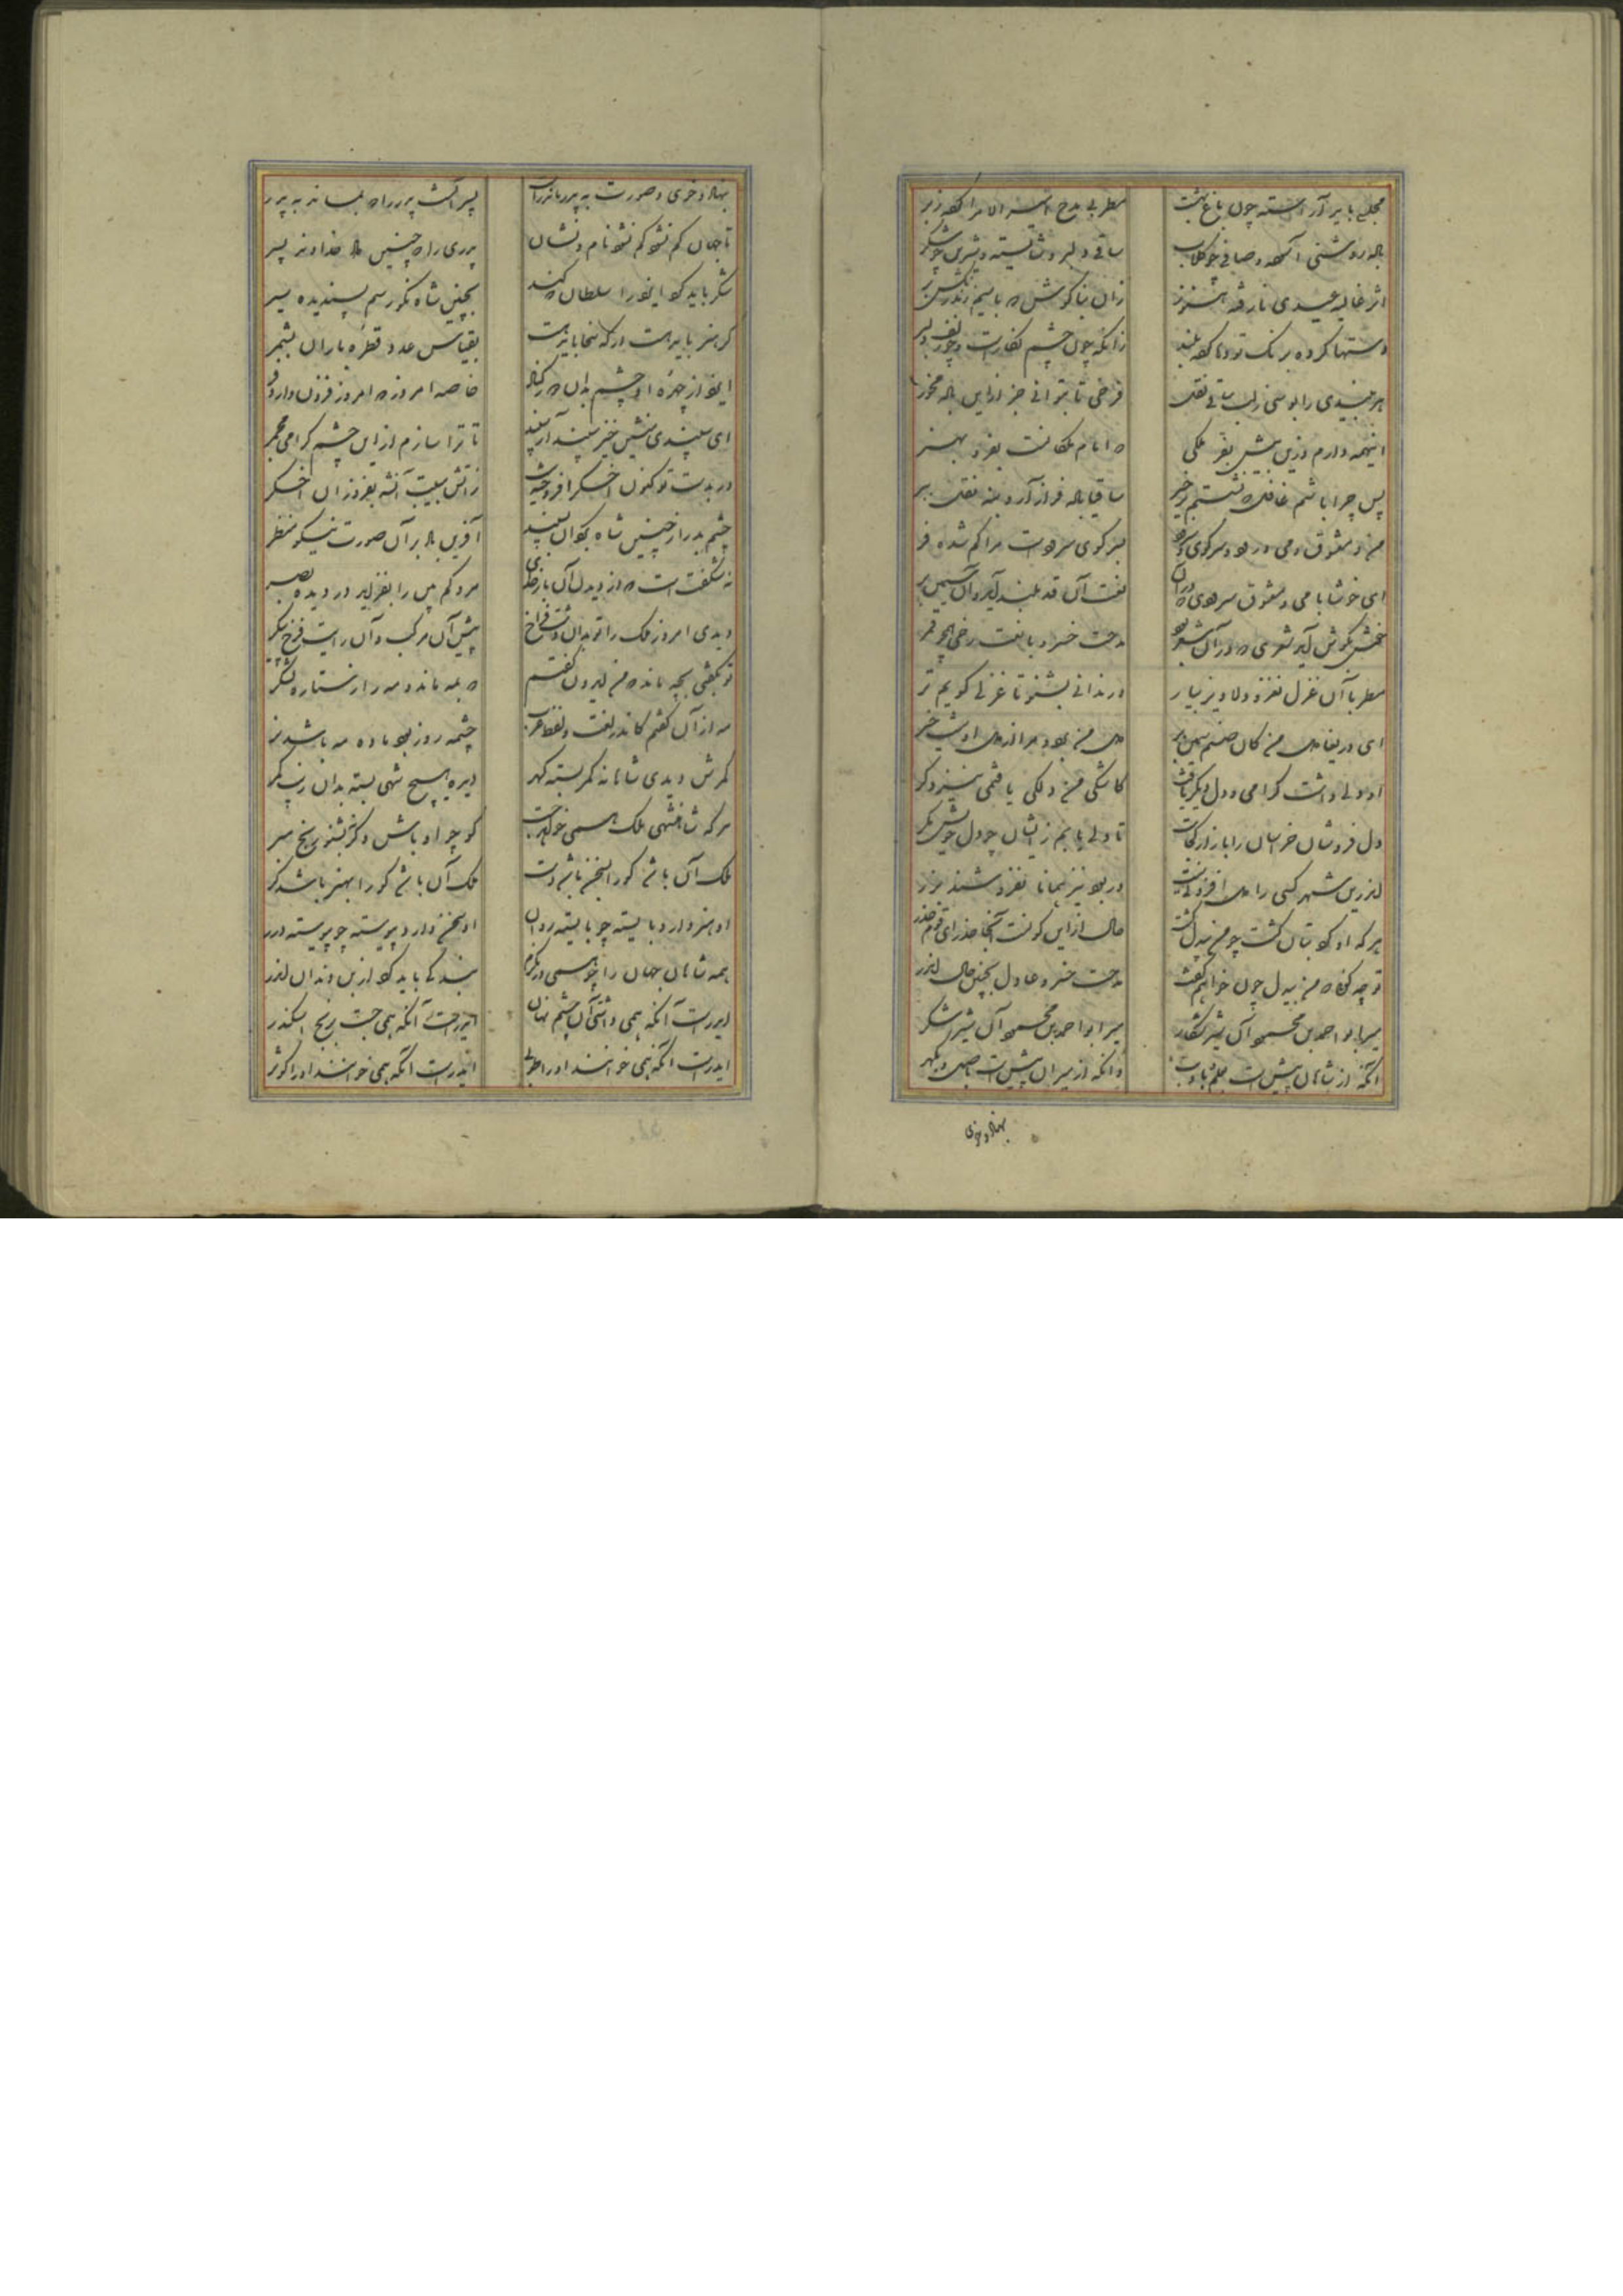 مجلسی باید آراسته چون باغ بهشت مطربی مدح امیرالامرا کرده زبر
باده روشن آسوده و صافی چو گلاب ساقی دلبر و شایسته و شیرین چو شکر
اثر غالیه عیدی نارفته هنوز زان بناگوش که با سیم زند رنگش بر
دستها کرده برنگ تو دنا کرده بلند زانکه چون چشم نگارست و چو زلف دلبر
هر نبیدی را بوسی ز لب ساقی نقل فرخی تا بتوانی جز ازین باده مخور
اینهمه دارم وزین بیش بفر ملکی که ایام ملکانست بفر و بهنر
پس چرا باشم غافل که نشستم برخیز ساقیا باده فراز آر و بنه نقل ببر
من و معشوق و می و رود و سر کوی سرود بسر کوی سرودست مرا گم شده خر
ای خوشا با می و معشوق سرودی که در آن نعت آن قد بلند آید و آن سیمین بر
خوش بگوش آید شعری که در آن شعر بود مدحت خسرو با نعت رخی همچو قمر
مطربا آن غزل نغز دلاویز بیار ور ندانی بشنو تا غزلی گویم تر
ای دریغا دل من کان صنم سیمین بر دل من برد و مرا از دل او نیست خبر
او دلی داشت گرامی و دل دیگر یافت کاشکی من دلکی یافتمی نیز دگر
دل فروشان خراسان را بازار کجاست تا دلی یابم زیشان چو دل خویش مگر
اندرین شهر کسی را دل افزونی نیست ور بود نیز همانا نفروشند بزر
هر که او گرد بتان گشت چو من بیدل گشت حال ازاین گونست آنجا حذر ای قوم حذر
تو چه گویی که من بیدل چون خواهم گفت مدحت خسرو عادل بچنین حال اندر
میر ابو احمد بن محمود آن شیر شکار میر ابو احمد بن محمود آن شیر شکر
آنکه از شاهان پیش است بعلم و بادب وآنکه از میران پیش است باصل و بگهر
بنهاد و خوی
بنهاد و خوی و صورت به پدر ماند راست پسر آنست پدر را که بماند به پدر
تا جهان گم نشود گم نشود نام و نشان پدری را که چنین داد خداوند پسر
شکر باید کرد ایزد را سلطان که کند بچنین شاه نکو رسم پسندیده سیر
گر هنر باید هست ار که سخا باید هست بقیاس عدد قطره باران بشمر
ایزد از چهره او چشم بدان دور کناد خاصه امروز که امروز فزون دارد فر
ای سپندی منشین خیز سپند آر سپند تا ترا سازم از این چشم گرامی مجمر
در بدست تو کنون اخگر افروخته نیست ز آتش هیبت آنشه بفروز آن اخگر
چشم بد را ز چنین شاه بگردان بسپند آفرین باد بر آن صورت نیکو منظر
نه شگفت است که از دیدن آن بار خدای مردگم بین را بفزاید در دیده بصر
دیدی امروز ملک را تو بدان دشت فراخ پیش آن مرکب و آن رایت فرخ پیکر
تو بگفتی بچه ماند که من ایدون گفتم که بمه ماند و مه را ز ستاره لشکر
مه از آن گفتم کاندر لغت و لفظ عرب چشمه روز بود ماده و مه باشد نر
کمرش دیدی شاهانه کمر بسته گهر دیده هیچ شهی بسته بدان زیب کمر
هر که شاهنشهی ملک همی خواهد جست گو چو او باش وگرنه بنشو رنج مبر
ملک آن باشد کو را بسخن باشد دست ملک آن باشد کو را بهنر باشد کر
او هنر دارد بایسته چو بایسته روان او سخن دارد پیوسته چو پیوسته درر
همه شاهان جهان را چو همی درنگرم بندگی باید کرد از بن دندان ایدر
ایدرست آنکه همی دانش آن چشم نهان ایدرست آنکه همی جست برنج اسکندر
ایدرست آنکه همی خوانند او را طوبی ایدرست آنکه همی خوانند او را کوثر